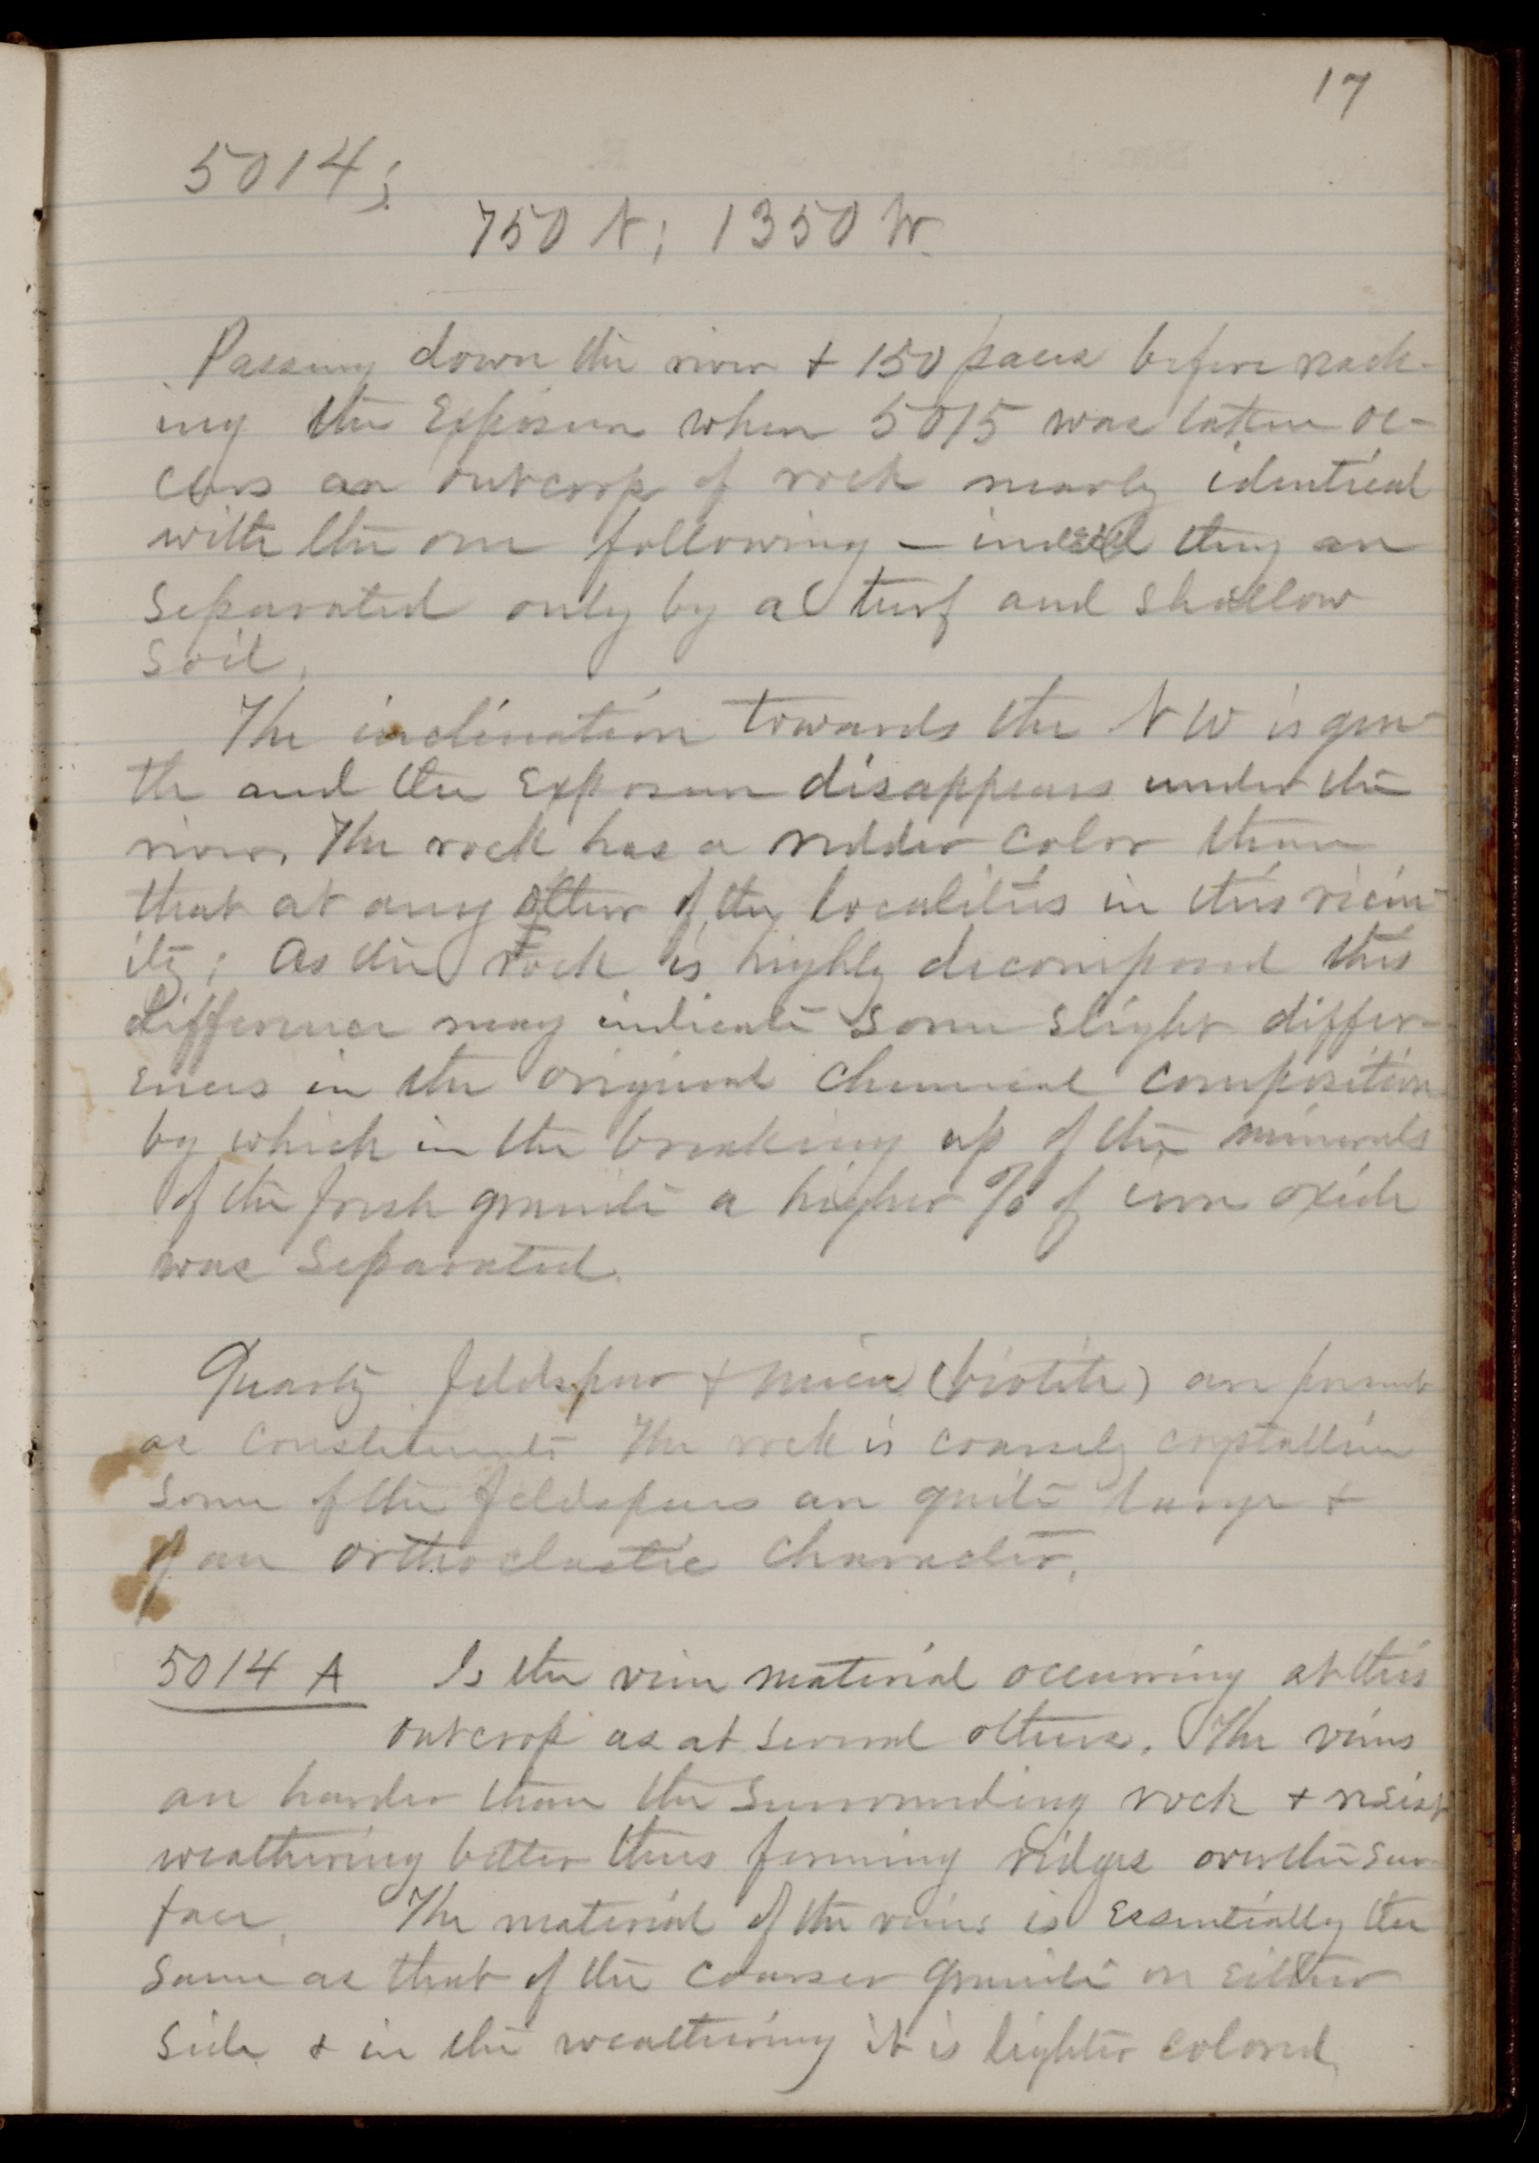 17
5014;
750 N; 1350 W.
Passing down the river + 150 paces before reach-
ing the Exposure when 5015 was taken oc-
curs an outcrop of rock nearly identical
with the one following – indeed they are
separated only by a turf and shallow
soil.
The inclination towards the NW is gen-
tle and the Exposure disappears under the
river. The rock has a redder color than
that at any other of the localities in this vicin-
ity; As the rock is highly decomposed this
difference may indicate some slight differ-
ences in the original chemical composition
by which in the breaking up of the minerals
of the fresh granite a higher % of iron oxide
was separated.
Quartz feldspar + mica (biotite) are present
as constituents The rock is coarsely crystalline
some of the feldspars are quite large +
of an orthoclastic character.
5014 A Is the vein material occurring at this
outcrop as at several others. The veins
are harder than the surrounding rock + resist
weathering better thus forming ridges over the sur-
face. The material of the veins is Essentially the
same as that of the coarser granite on either
side + in the weathering it is lighter colored